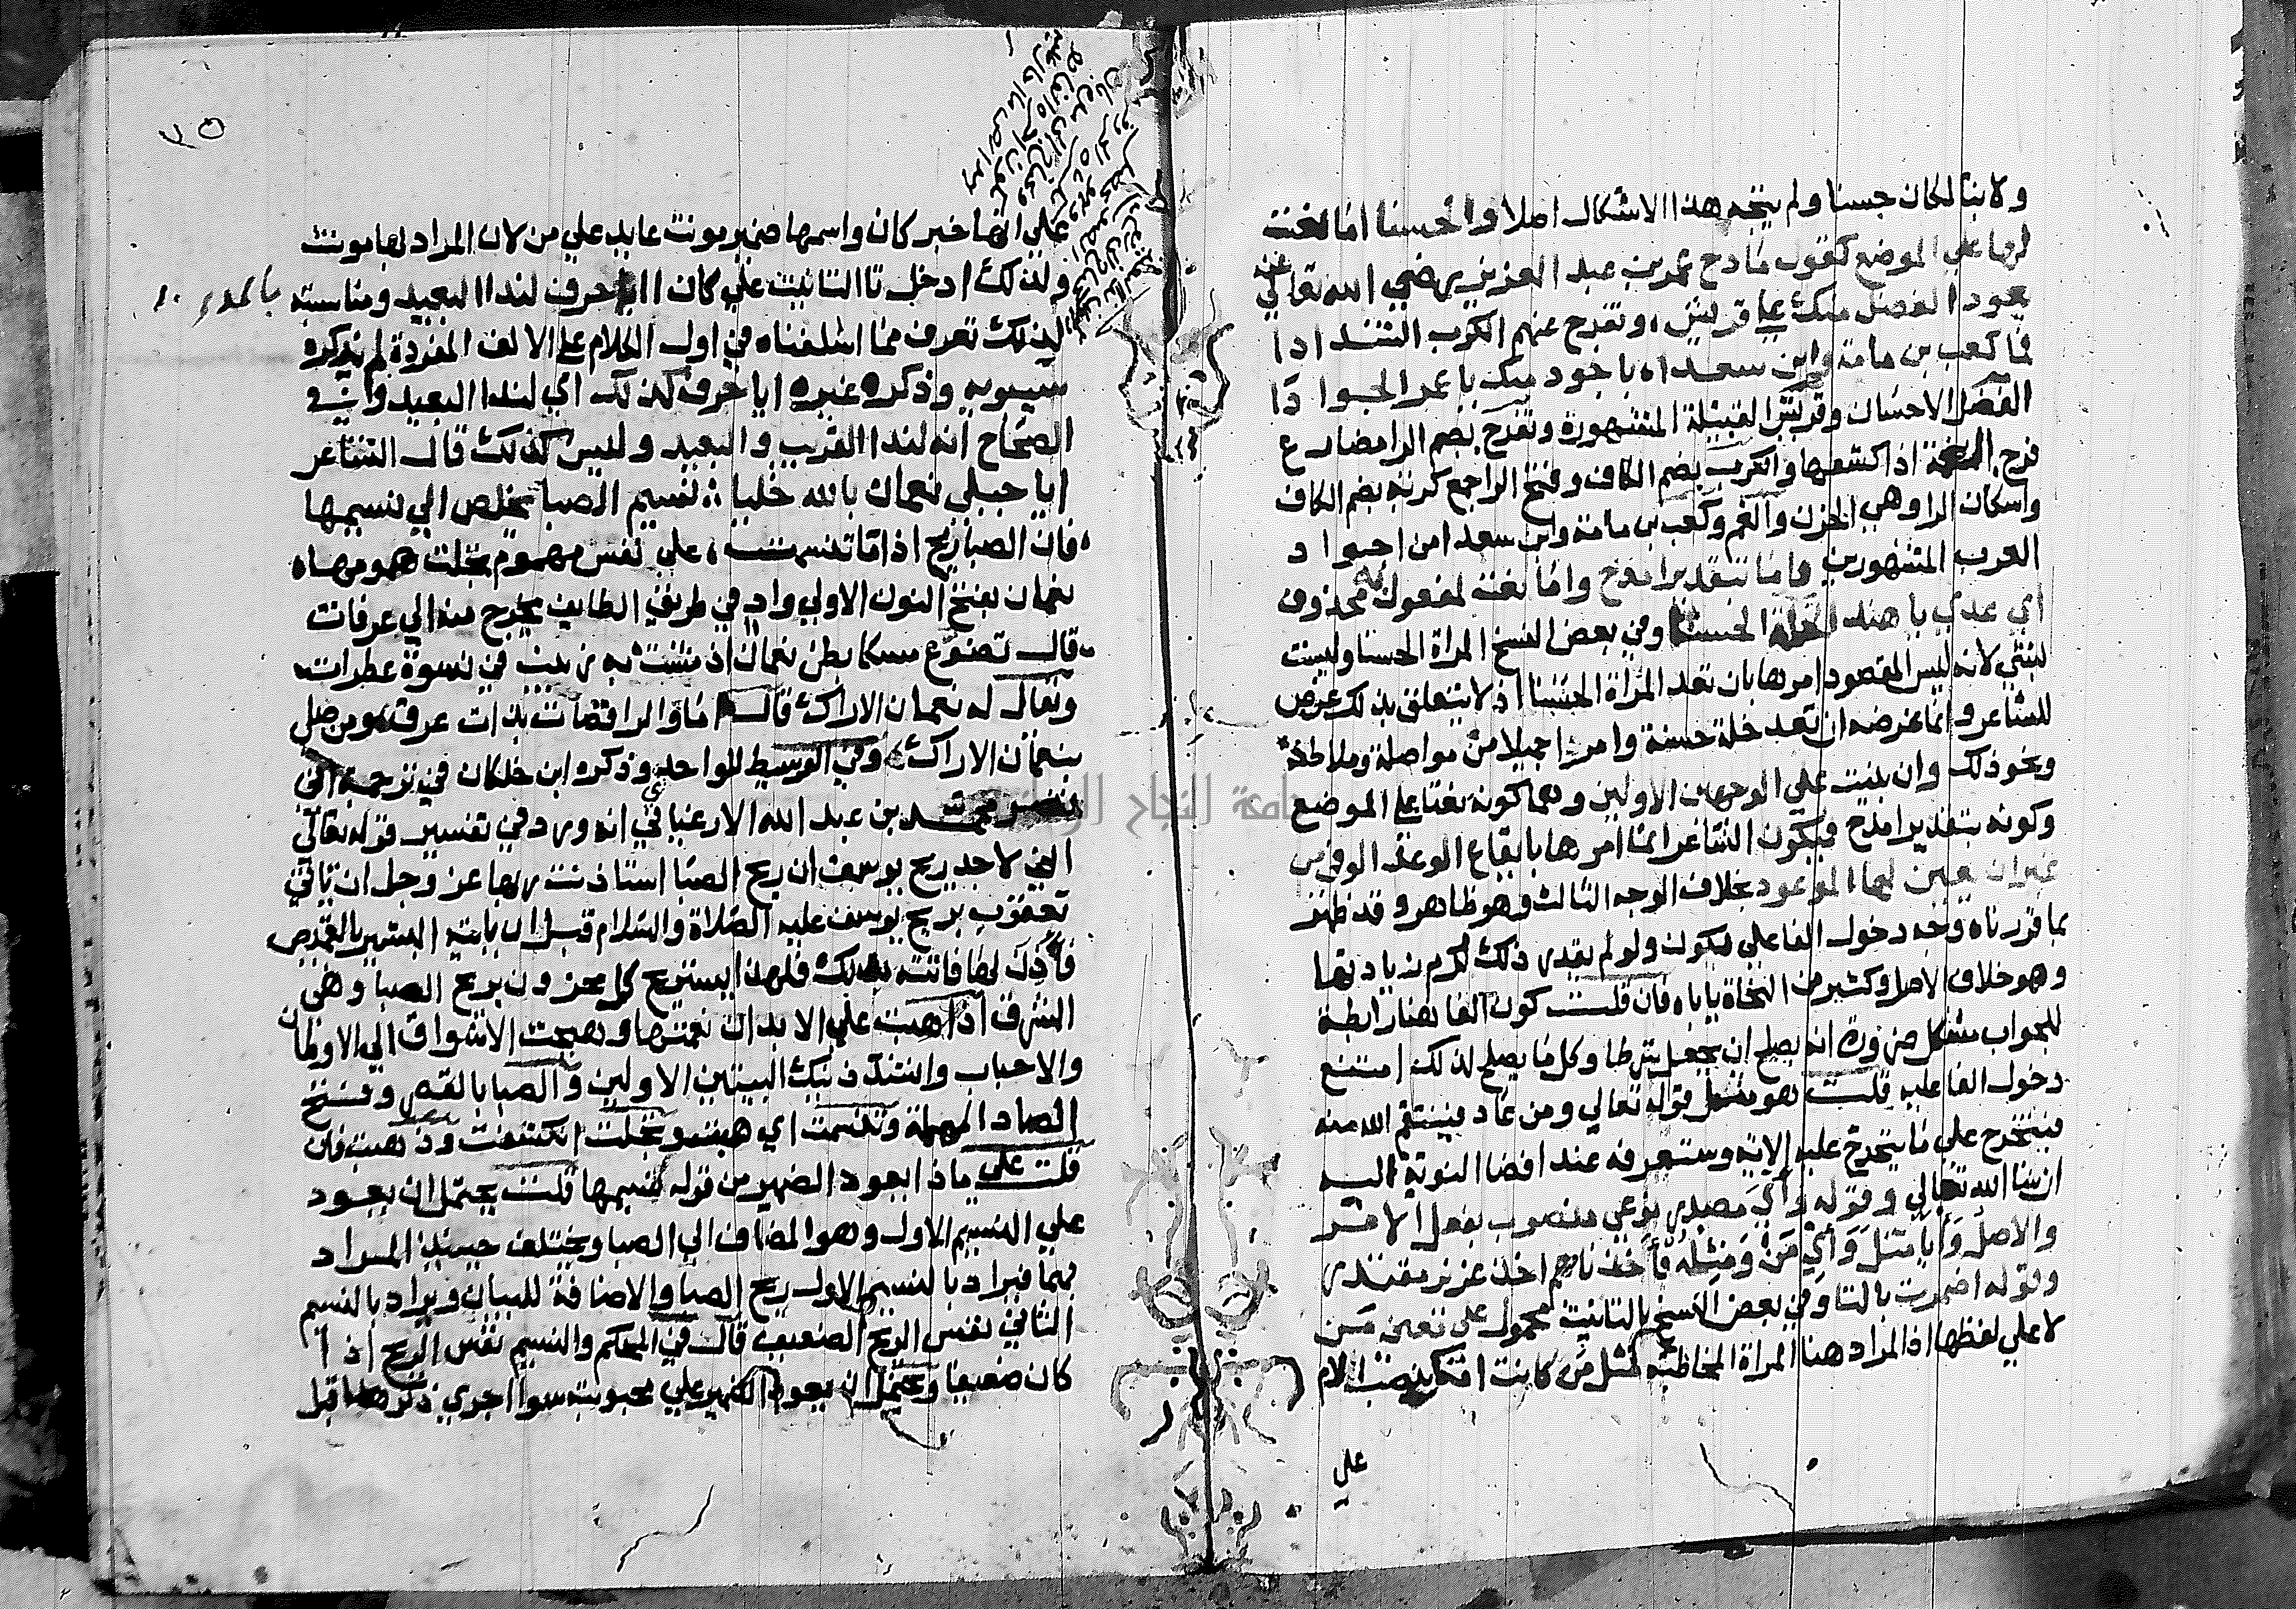 ولا بنا لكان حسنا ولم يتجه هذا الاشكال اصلا والحسنا اما نعت
لها على الموضع كقول مادح عمر بن عبد العزيز رضي الله تعالي عنه
يعود الفضل منك علي قريش، وتفرج عنهم الكرب الشدادا
فما كعب بن مامة وابن سعدا، باجود منك يا عمر الجوادا
الفضل الاحسان وقريش القبيلة المشهورة وتفرج بضم الرا مضارع
فرج اذا كشفها والكرب بضم الكاف وفتح الرا جمع كربه بضم الكاف
واسكان الرا وهي الحزن والغم وكعب بن مامة وابن سعدا من اجواد
العرب المشهورين واما بتقدير امدح واما نعت لمفعول به محذوف
اي عدي يا هند الخلة الحسنا وفي بعض النسخ المراة الحسنا وليست
لبثي لانه ليس المقصود امرها بان تعد المراة الحسنا اذ لا يتعلق بذلك غرض
للشاعر وانما غرضه ان تعد خلة حسنة وامرا جميلا من مواصلة وملاطفة
ونحو ذلك وان بنيت علي الوجهين الاولين وهما كونه نعتا علي الموضع
وكونه بتقدير امدح فيكون الشاعر انما امرها بايقاع الوعد الوفي من
غير ان يعين لها الموعود بخلاف الوجه الثالث وهو ظاهر وقد ظهر
بما قررناه وجه دخول الفا علي فيكون ولو لم يقدر ذلك لزم زيادتها
وهو خلاف الاصل وكثير من النحاة ياباه فان قلت كون الفا هنا رابطة
للجواب مشكل ضرورة انه يصلح ان يجعل شرطا وكل ما يصلح لذلك امتنع
دخول الفا عليه قلت هو مثل قوله تعالي ومن عاد فينتقم الله منه
فيتخرج علي ما يتخرج عليه الاية وستعرفه عند افضا النوبة اليه
ان شا الله تعالي وقوله واي مصدري نوعي منصوب بفعل الامر
والاصل وايا مثل واي من ومثله فاخذناهم اخذ عزيز مقتدر
وقوله اضمرت بالتا وفي بعض النسخ بالتانيث محمول علي معني من
لا علي لفظها اذ المراد هنا المراة المخاطبة مثل من كانت امك بنصب الام
علي
٧٥
علي انها خبر كان واسمها ضمير مونث عايد علي من لان المراد بها مونث
ولذلك ادخل تا التانيث علي كان ايا حرف لندا البعيد ومناسبته
بالمد
لذلك تعرف مما اسلفناه في اول الكلام علي الالف المفردة لم يذكره
سيبويه وذكره غيره ايا حرف كذلك اي لندا البعيد وفي
الصحاح انه لندا القريب والبعيد وليس كذلك قال الشاعر
ايا جبلي نعمان بالله خليا :: نسيم الصبا يخلص الي نسيمها
فان الصبا ريح اذا ما تنسمت، علي نفس مهموم تجلت همومها
نعمان بفتح النون الاولي واد في طريق الطايف يخرج منه الي عرفات
قال تضوع مسكا بطن نعمان اذ مشت به زينب في نسوة عطرات
ويقال له نعمان الاراك قال اما والراقصات بذات عرق، ومن صلي
بنعمان الاراك، وفي الوسيط للواحدي وذكره ابن خلكان في ترجمة ابي
محمد بن عبد الله الارغياني انه ورد في تفسير قوله تعالي
اني لاجد ريح يوسف ان ريح الصبا استاذنت ربها عز وجل ان تاتي
يعقوب بريح يوسف عليه الصلاة والسلام قبل ان ياتيه البشير بالقميص
فاذن لها فاتته بذلك فلهذا يستريح كل محزون بريح الصبا وهي
الشرق اذا هبت علي الابدان نعمتها وهيجت الاشواق الي الاوطان
والاحباب وانشد ذينك البيتين الاولين والصبا بالقصر وفتح
الصاد المهملة وتنسمت اي هبت وتجلت انكشفت وذهبت فان
قلت علي ماذا يعود الضمير من قوله نسيمها قلت يحتمل ان يعود
علي النسيم الاول وهو المضاف الي الصبا ويختلف حينيذ المراد
بهما فيراد بالنسيم الاول ريح الصبا والاضافة للبيان ويراد بالنسيم
الثاني نفس الريح الضعيف قال في المحكم والنسيم نفس الريح اذا
كان ضعيفا ويحتمل ان يعود الضمير علي محبوبته سوا اجري ذكرها قبل